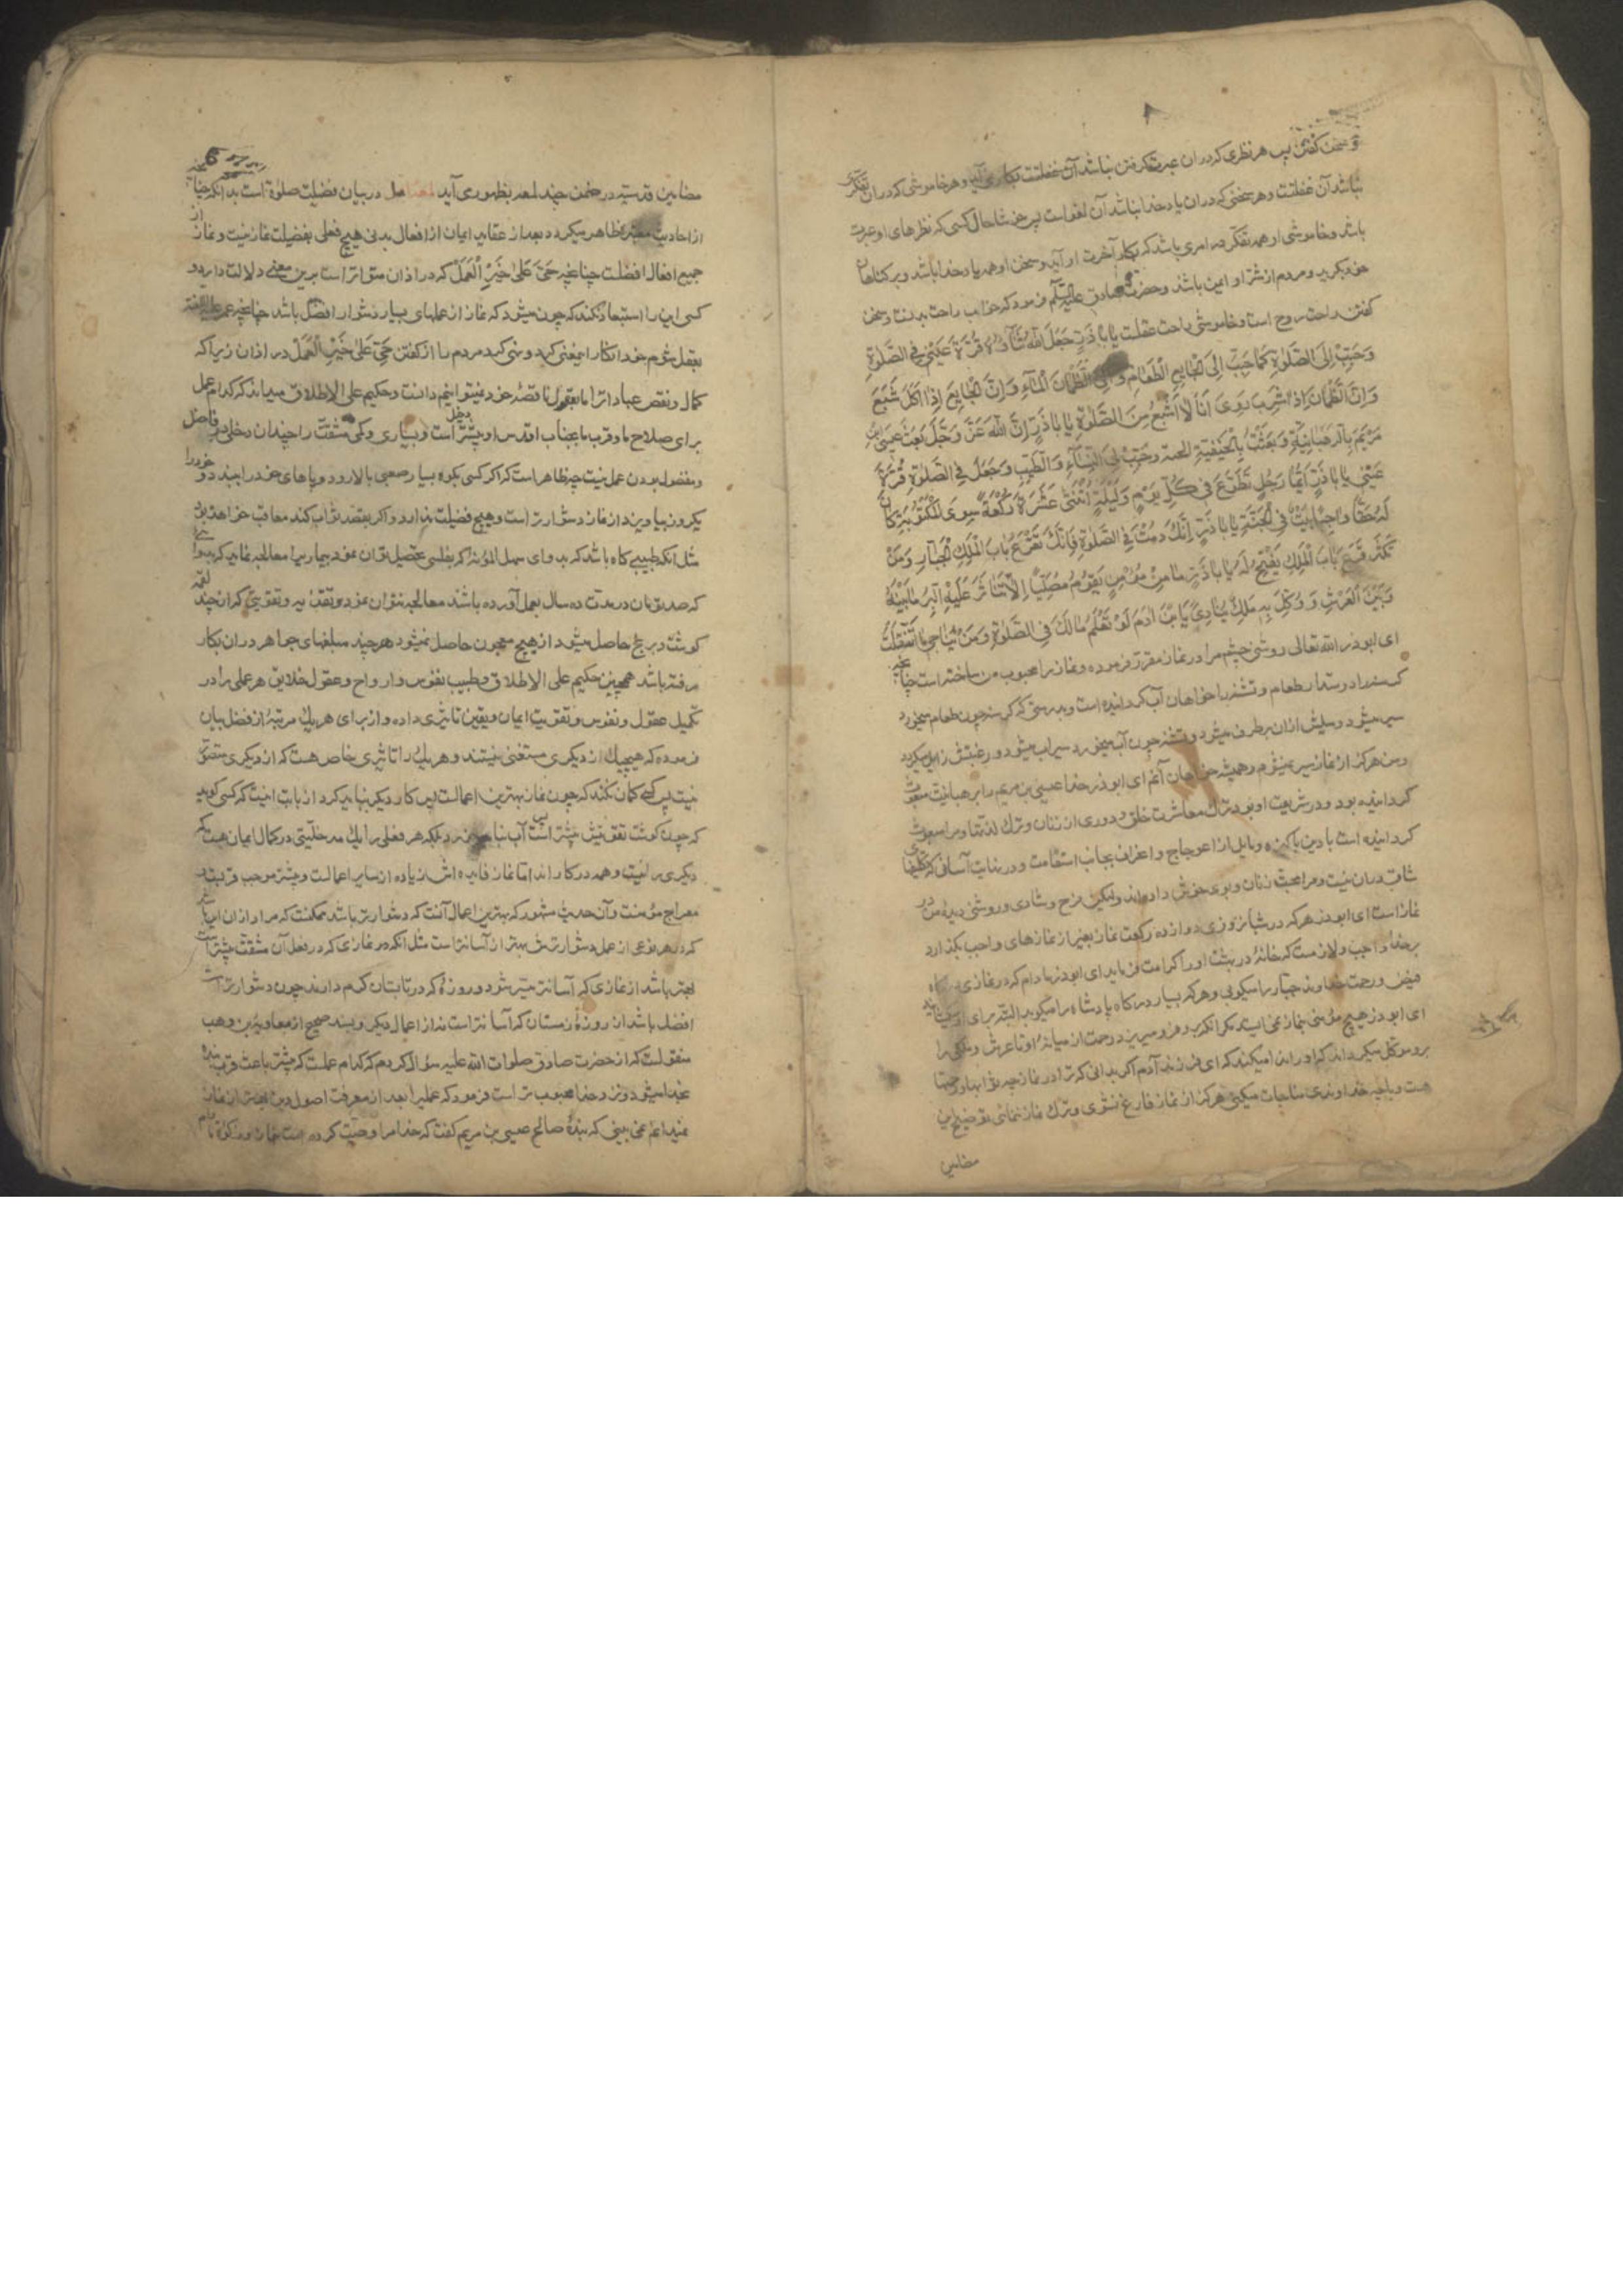 و سخن گفتن پس هر نظری که در آن عبرت گرفتن نباشد آن غفلتست و هر خاموشی که در آن تفکری
نباشد آن غفلتست و هر سخنی که در ان یاد خدا نباشد آن لغو است پس خوشا حال کسی که نظرهای او عبرت
باشد و خاموشی او همه تفکر در امری باشد که بکار آخرت او آید و سخن او همه یاد خدا باشد و بر کناهان
خود بکرید و مردم از شر او ایمن باشند و حضرت صادق علیه السلام فرمود که خواب راحت بدنست و سخن
کفتن راحت روح است و خاموشی راحت عقلست یا اباذر جعل الله ثناؤه قرة عینی فی الصلوة
و حبب الی الصلوة کما حبب الی الجایع الطعام و الی الظمان الماء و ان الجایع اذا اکل شبع
و ان الظمان اذا شرب روی و انا لا اشبع من الصلوة یا اباذر ان الله عز و جل بعث عیسی ابن
مریم بالرهبانیة و بعثت بالحنیفیة السمحة و حبب الی النساء و الطیب و جعل فی الصلوة قرة
عینی یا اباذر ایما رجل تطوع فی کل یوم و لیلة اثنتی عشرة رکعة سوی المکتوبة کان
له حقا واجبا بیت فی الجنة یا اباذر انک ما دمت فی الصلوة فانک تقرع باب الملک الجبار و من
یکثر قرع باب الملک یفتح له یا اباذر ما من مؤمن یقوم مصلیا الا تناثر علیه البر ما بینه
و بین العرش و وکل به ملک ینادی یا بن ادم لو تعلم ما لک فی الصلوة و من تناجی ما انفتلت
ای ابوذر الله تعالی روشنی چشم مرا در نماز مقرر فرموده و نماز را محبوب من ساخته است چنانچه
کرسنه را دوستدار طعام و تشنه را خواهان آب کردانیده است و بدرستی که کرسنه چون طعام میخورد
سیر میشود و میلش از ان برطرف میشود و تشنه چون آب میخورد سیراب میشود و رغبتش زایل میکردد
و من هرکز از نماز سیر نمیشوم و همیشه خواهان آنم ای ابوذر خدا عیسی بن مریم را بر رهبانیت مبعوث
کردانیده بود و در شریعت او بود ترک معاشرت خلق و دوری از زنان و ترک لذتها و مرا مبعوث
کردانیده است با دین پاکیزه و مایل از اعوجاج و انحراف بجانب استقامت و در نهایت آسانی که تکلیفهای
شاق در ان نیست و مرا محبت زنان و بوی خوش داده‌اند ولیکن فرح و شادی و روشنی دیده من در
نماز است ای ابوذر هرکه در شبانروزی دوازده رکعت نماز بغیر از نمازهای واجب بکذارد
بر خدا واجب و لازمست که خانهٔ در بهشت او را کرامت فرماید ای ابوذر مادام که در نمازی درکاه
فیض و رحمت خداوند جبار را میکوبی و هرکه بسیار درکاه پادشاه را میکوبد البته برای او میکشایند
ای ابوذر هیچ مؤمنی بنماز نمی‌ایستد مکر انکه بر او فرو میریزد رحمت از میانهٔ او تا عرش و ملکی را
برو موکل میکرداند که او را ندا میکند که ای فرزند آدم اکر بدانی که ترا در نماز چه ثوابها و رحمتها
هست و با چه خداوندی مناجات میکنی هرکز از نماز فارغ نشوی و ترک نماز ننمائی توضیح این
مضامین
مضامین قدسیه در ضمن چند لمعه بظهور می‌آید در بیان فضیلت صلوة است بدانکه چنانچه
از احادیث معتبره ظاهر میکردد بعد از عقاید ایمان از افعال بدنی هیچ فعلی بفضیلت نماز نیست و نماز از
جمیع افعال افضلست چنانچه حی علی خیر العمل که در اذان متواتر است برین معنی دلالت دارد و
کسی این را استبعاد نکند که چون میشود که نماز از عملهای بسیار دشوار افضل باشد چنانچه عمر
بعقل شوم خود انکار این معنی کرد و نهی کرد مردم را از کفتن حی علی خیر العمل در اذان زیرا که
کمال و نقص عبادات را ما بعقول ناقصهٔ خود نمیتوانیم دانست و حکیم علی الاطلاق میداند که کدام عمل
برای صلاح ما و قرب ما بجناب اقدس او بیشتر دخل است و بسیاری و کمی مشقت را چندان دخلی در فاضل
و مفضول بودن عمل نیست چه ظاهر است که اکر کسی بکوه بسیار صعبی بالا رود و پاهای خود را ببندد و خود را
یکروز بیاویزد از نماز دشوارتر است و هیچ فضیلت ندارد و اکر بقصد ثواب کند معاقب خواهد بود
مثل آنکه طبیبی کاه باشد که بدوای سهل المؤنه که بفلسی تحصیل توان نمود بیمار را معالجه نماید که بدوائی
که صد تومان در مدت ده سال بعمل آورده باشند معالجه نتوان نمود و تغذیه و تقویتی که از چند لقمه
کوشت و برنج حاصل میشود از هیچ معجون حاصل نمیشود هرچند مبلغهای جواهر در ان بکار
رفته باشد همچنین حکیم علی الاطلاق و طبیب نفوس و ارواح و عقول خلایق هر عملی را در
تکمیل عقول و نفوس و تقویت ایمان و یقین تاثیری داده و از برای هریک مرتبهٔ از فضل بیان
فرموده که هیچیک از دیکری مستغنی نیستند و هریک را تاثیری خاص هست که از دیکری متصور
نیست پس کسی کمان نکند که چون نماز بهترین اعمالست پس کار دیکر نباید کرد از بابت اینست که کسی کوید
که چون کوشت تقویتش بیشتر است پس آب نباید خورد بلکه هر فعلی را یک مدخلیتی در کمال ایمان هست که
دیکری را نیست و همه در کارند اما نماز فایده‌اش زیاده از سایر اعمالست و بیشتر موجب قربست و
معراج مؤمنست و آن حدیث مشهور که بهترین اعمال آنست که دشوارتر باشد ممکنست که مراد از ان این باشد
که در هر نوعی از عمل دشوارترش بهتر از آسانتر است مثل آنکه در نمازی که در فعل آن مشقت بیشتر است
بهتر باشد از نمازی که آسانتر میسر شود و روزهٔ که در تابستان کرم دارند چون دشوارتر است
افضل باشد از روزهٔ زمستان که آسانتر است نه از اعمال دیکر و بسند صحیح از معاویة بن وهب
منقولست که از حضرت صادق صلوات الله علیه سؤال کردم که کدام عملست که بیشتر باعث قرب بنده
بخدا میشود و نزد خدا محبوب‌تر است فرمود که عملی را بعد از معرفت اصول دین بهتر از نماز
نمیدانم نمی‌بینی که بندهٔ صالح عیسی بن مریم کفت که خدا مرا وصیت کرده است بنماز و زکوة تا